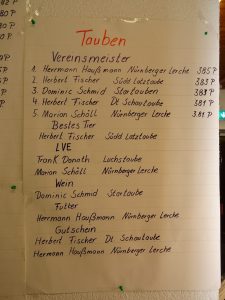 382 P
80 P
80 P
0 P
Tauben
Vereinsmeister
1. Herrmann Haußmann Nürnberger Lerche 385 P
2. Herbert Fischer Südd Latztaube 383 P
3. Dominic Schmid Startauben 383 P
4. Herbert Fischer Dt Schautaube 381 P
5. Marion Schöll Nürnberger Lerche 381 P
Bestes Tier
Herbert Fischer Südd Latztaube
LVE
Frank Donath Luchstaube
Marion Schöll Nürnberger Lerche
Wein
Dominic Schmid Startaube
Futter
Herrmann Haußmann Nürnberger Lerche
Gutschein
Herbert Fischer Dt Schautaube
Hermann Haußmann Nürnberger Lerche